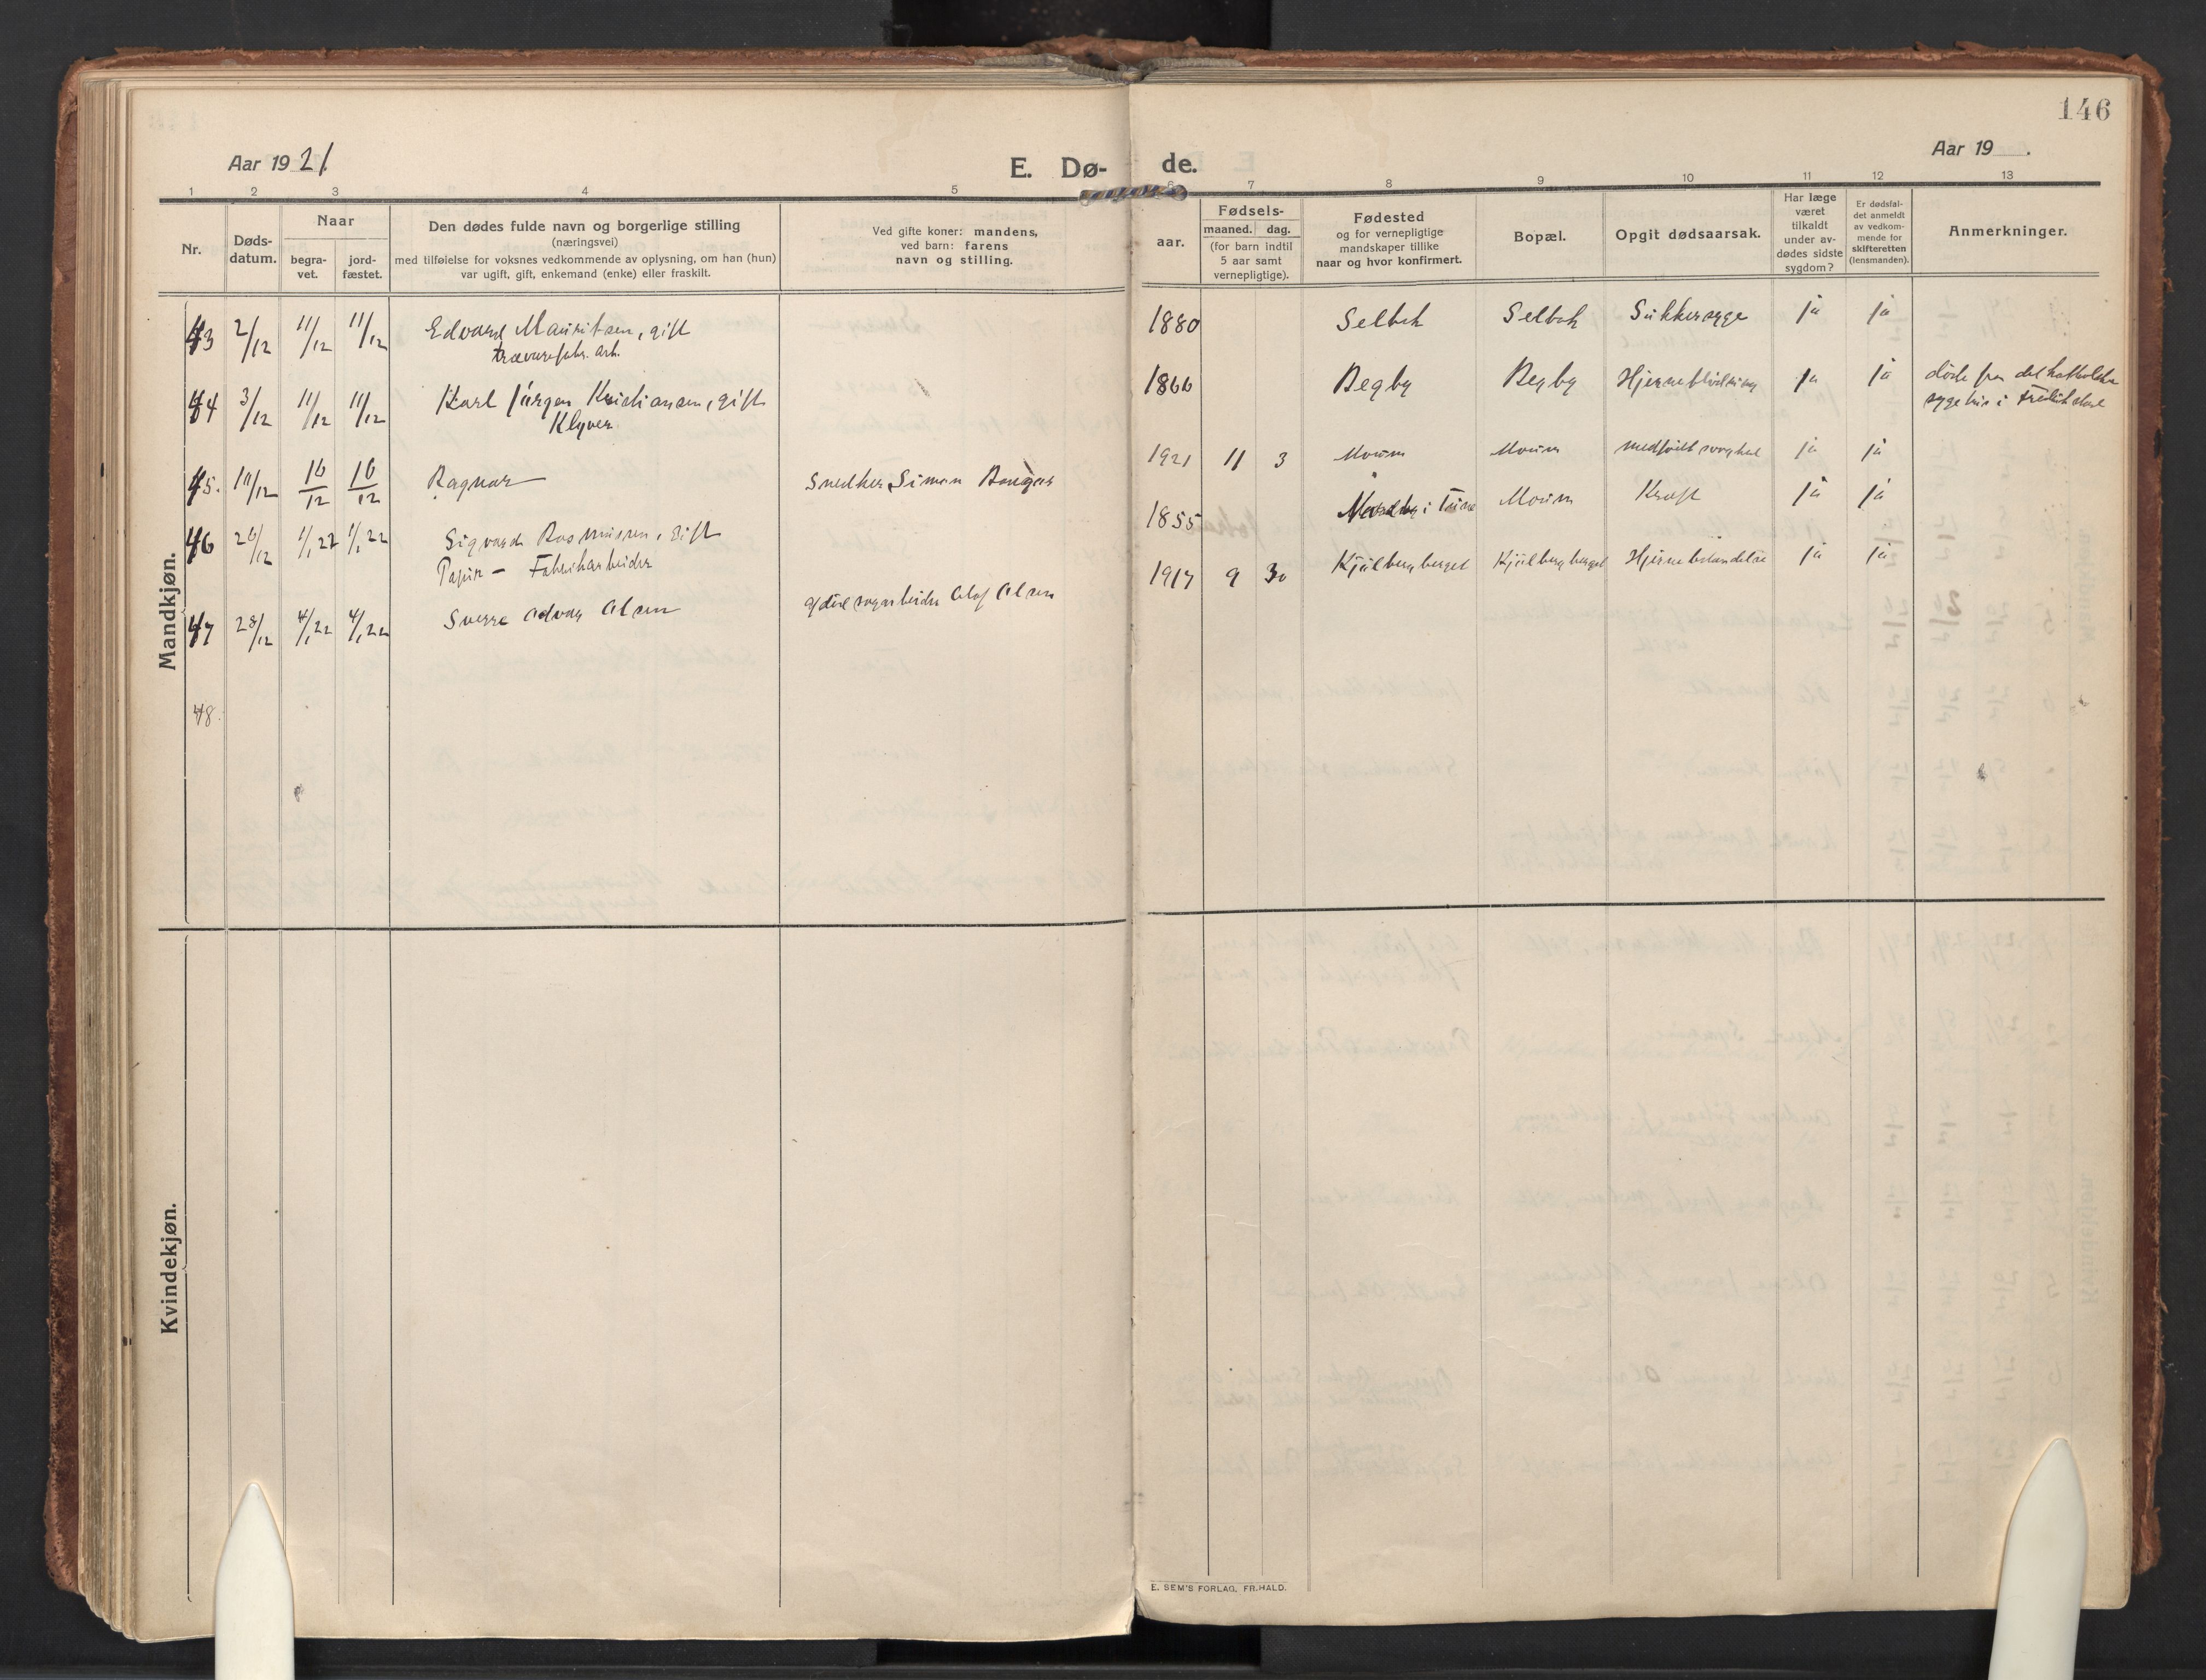 146
Aar 19 21.
E. Dø-
de.
Aar 19 .
1 2 3 4 5 6 7 8 9 10 11 12 13
Nr.
Døds-
datum.
Naar
begra-
vet.
jord-
fæstet.
Den dødes fulde navn og borgerlige stilling
(næringsvei)
med tilføielse for voksnes vedkommende av oplysning, om han (hun)
var ugift, gift, enkemand (enke) eller fraskilt.
Ved gifte koner: mandens,
ved barn: farens
navn og stilling.
aar.
Fødsels-
maaned. dag.
(for barn indtil
5 aar samt
vernepligtige).
Fødested
og for vernepligtige
mandskaper tillike
naar og hvor konfirmert.
Bopæl.
Opgit dødsaarsak.
Har læge
været
tilkaldt
under av-
dødes sidste
sygdom?
Er dødsfal-
det anmeldt
av vedkom-
mende for
skifteretten
(lensmanden).
Anmerkninger.
Mandkjøn.
43 2/12 11/12 11/12 Edvard Mauritsen, gift 1880 Selbak Selbak Sukkersyge ja ja
trævarefabr. arb.
44 3/12 11/12 11/12 Karl Jürgen Kristiansen, gift 1866 Begby Begby Hjerneblødning ja ja døde paa det katholske
Klyver sygehus i Fredrikstad
45. 16/12 16/12 Ragnar Snedker Simon 1921 11 3 Moum Moum medfødt svaghet ja ja
46 26/12 1/1 22 1/1 22 Sigvard Rasmussen, gift 1855 i Tune Moum Kræft ja ja
Papir- Fabrikarbeider
47 28/12 4/1 22 4/1 22 Sverre Olsen sagarbeider Olaf Olsen 1917 9 30 Kjølbergberget Kjølbergberget Hjernebetændelse ja ja
48.
Kvindekjøn.
E. SEM'S FORLAG, FR.HALD.